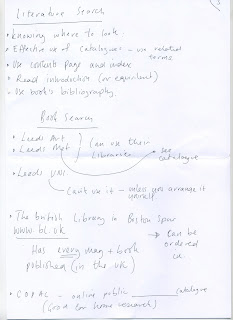 Literature Search
• Knowing where to look.
• Effective use of catalogues – use related
terms
• Use contents page and index
• Read introduction (or equivalent)
• Use book's bibliography.
Book Search
• Leeds Met
• Leeds Met
can use their
Libraries
see
catalogue
• Leeds Uni
Can't use it – unless you arrange it
yourself.
• The British Library in Boston Spar
www.bl.uk
→ Can be
ordered
Has every mag + book
published (in the UK)
• COPAC - online public ______ catalogue
(Good for home research)